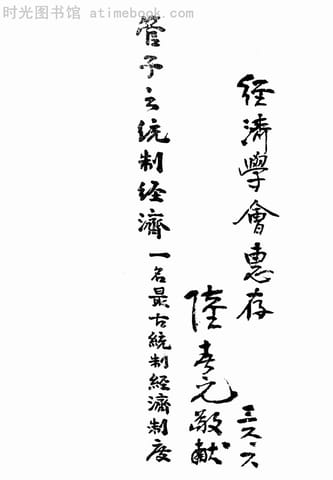 时光图书馆 atimebook.com
經濟學會惠存
陸春元敬献 三六、六
管子之統制經濟 一名最古統制經濟制度